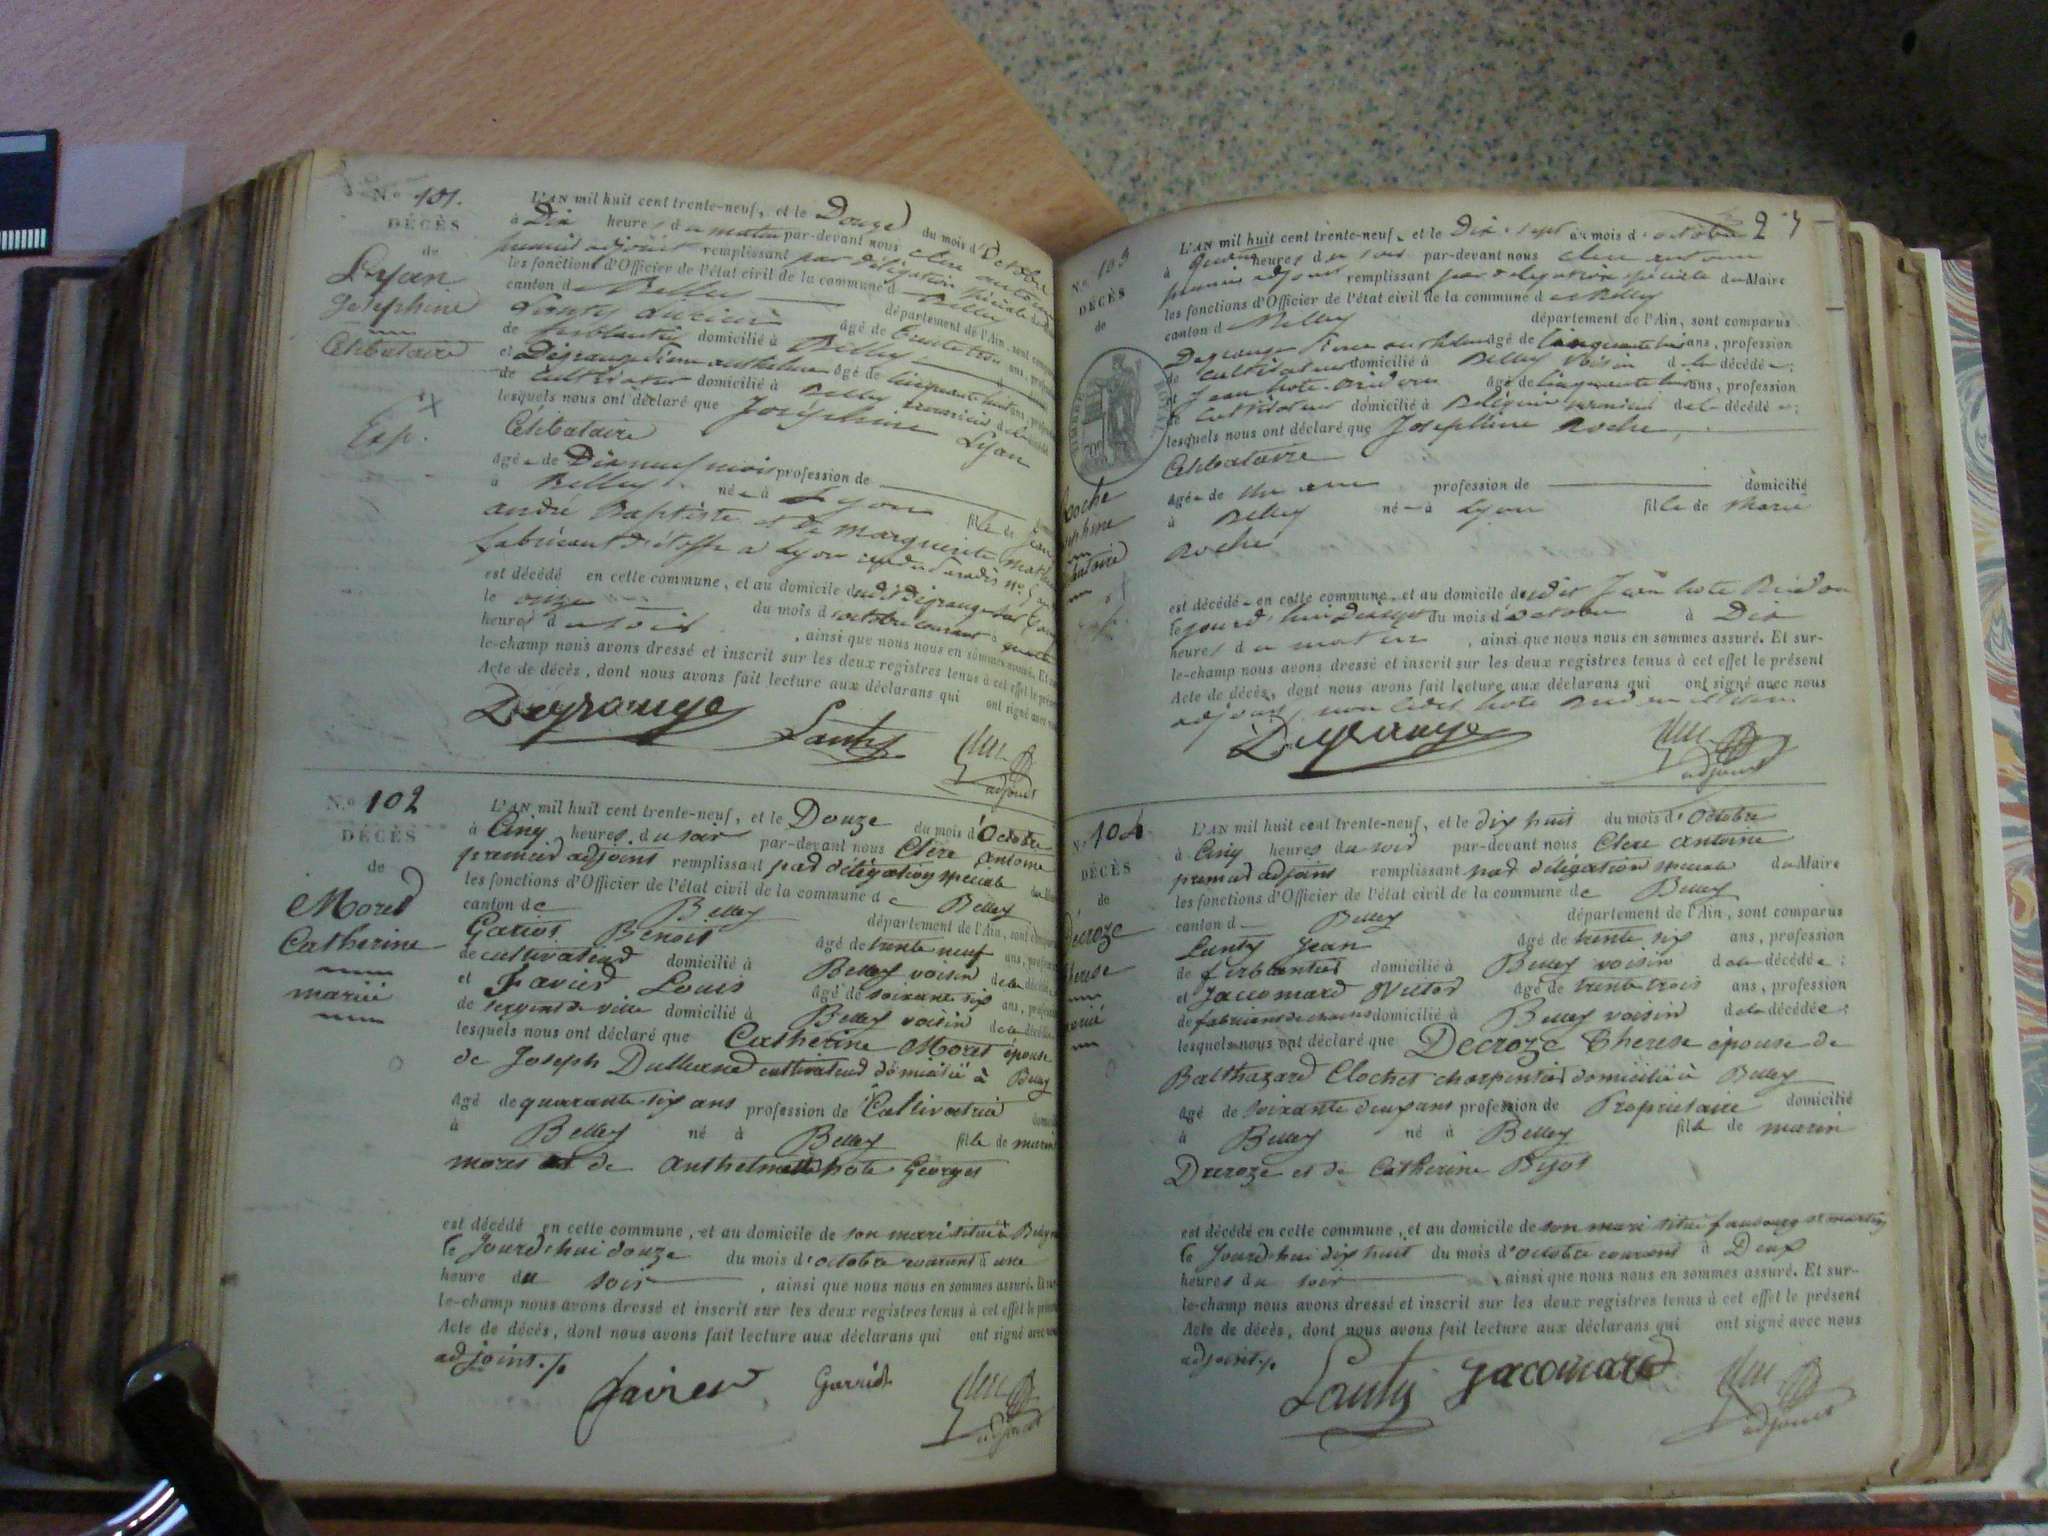 N.º 101.
DÉCÈS
de
Lyan
Josephine
Célibataire
Exp.
L'AN mil huit cent trente-neuf, et le Douze du mois d'Octobre
à Dix heures du matin par-devant nous Clerc antoine
premier adjoint remplissant par délégation spéciale du
les fonctions d'Officier de l'état civil de la commune d Belley
canton de Belley département de l'Ain, sont
Lanty âgé de trente trois ans,
de ferblantier domicilié à Belley
et Degrange anthelme âgé de cinquante huit ans,
de cultivateur domicilié à Belley
lesquels nous ont déclaré que Joséphine Lyan
Célibataire
agée de Dix neuf mois profession de
à Belley née à Lyon fille de Jean
andré Baptiste et de marguerite
fabricant d'étoffe a Lyon
est décédé en cette commune, et au domicile dudit Degrange
le onze du mois d'octobre courant à quatre
heures du soir , ainsi que nous nous en sommes assuré. Et
le-champ nous avons dressé et inscrit sur les deux registres tenus à cet effet le
Acte de décès, dont nous avons fait lecture aux déclarans qui ont signé avec
Degrange Lanty Clerc
adjoint
N.º 102
DÉCÈS
de
Moret
Catherine
mariée
L'AN mil huit cent trente-neuf, et le Douze du mois d'Octobre
à Cinq heures du soir par-devant nous Clerc Antoine
premier adjoint remplissant par délégation spéciale
les fonctions d'Officier de l'état civil de la commune de Belley
canton de Belley département de l'Ain, sont
Benoit âgé de trente neuf ans,
de cultivateur domicilié à Belley voisin de la
et Favier Louis âgé de soixante six ans,
de sergent de ville domicilié à Belley voisin de la décédée
lesquels nous ont déclaré que Catherine Moret épouse
de Joseph cultivateur domicilié à Belley
Agé de quarante six ans profession de Cultivatrice
à Belley né à Belley fille de marin
moret et de anthelmette hote Georges
est décédé en cette commune, et au domicile de son mari situé à
le Jourd'hui douze du mois d'octobre courant à une
heure du soir , ainsi que nous nous en sommes assuré. Et
le-champ nous avons dressé et inscrit sur les deux registres tenus à cet effet le
Acte de décès, dont nous avons fait lecture aux déclarans qui ont signé avec
adjoint./.
Favier Clerc
adjoint
N.º 103
DÉCÈS
de
Roche
L'AN mil huit cent trente-neuf, et le Dix-sept du mois d'octobre
à heures du soir par-devant nous Clerc antoine
premier adjoint remplissant par délégation spéciale du Maire
les fonctions d'Officier de l'état civil de la commune de Belley
canton d Belley département de l'Ain, sont comparus
Degrange anthelme âgé de cinquante huit ans, profession
de cultivateur domicilié à Belley voisin de la décédée;
et Jean hote Bridon âgé de cinquante ans, profession
de cultivateur domicilié à de la décédée;
lesquels nous ont déclaré que Josephine Roche,
Célibataire
Agée de Un an profession de domicilié
à Belley née à Lyon fille de Marie
Roche
est décédée en cette commune, et au domicile dudit Jean hote Bridon
le jourd'hui dix sept du mois d'octobre à Dix
heures du matin , ainsi que nous nous en sommes assuré. Et sur-
le-champ nous avons dressé et inscrit sur les deux registres tenus à cet effet le présent
Acte de décès, dont nous avons fait lecture aux déclarans qui ont signé avec nous
adjoint, non ledit hote Bridon
Degrange Clerc
adjoint
TIMBRE ROYAL
N.º 104
DÉCÈS
de
Decroze
L'AN mil huit cent trente-neuf, et le dix huit du mois d'Octobre
à Cinq heures du soir par-devant nous Clerc antoine
premier adjoint remplissant par délégation speciale du Maire
les fonctions d'Officier de l'état civil de la commune de Belley
canton d Belley département de l'Ain, sont comparus
Lanty Jean âgé de trente six ans, profession
de ferblantier domicilié à Belley voisin de la décédée;
et Jaccomard Victor âgé de trente trois ans, profession
de fabricant de domicilié à Belley voisin de la décédée;
lesquels nous ont déclaré que Decroze Therese épouse de
Balthazard Clochet charpentier domicilié à Belley
Agé de soixante deux ans profession de Propriétaire domicilié
à Belley né à Belley fille de marin
Decroze et de Catherine
est décédé en cette commune, et au domicile de son mari situé faubourg st martin
le Jourd'hui dix huit du mois d'octobre courant à Deux
heures du soir , ainsi que nous nous en sommes assuré. Et sur-
le-champ nous avons dressé et inscrit sur les deux registres tenus à cet effet le présent
Acte de décès, dont nous avons fait lecture aux déclarans qui ont signé avec nous
adjoint./.
Lanty Jacomard Clerc
adjoint